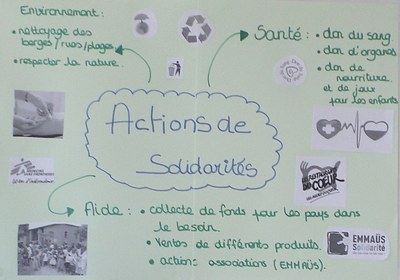 Environnement :
• nettoyage des
berges/rues/plages
• respecter la nature.
Santé : • don du sang
• don d'organes
• don de
nourriture
et de jouet
pour les enfants
Actions de
Solidarités
MEDECINS
SANS FRONTIERES
RESTAURANTS
DU COEUR
Aide : • collecte de fonds pour les pays dans
le besoin.
• Ventes de différents produits.
• actions associations (EMMAÜS).
EMMAÜS
Solidarité